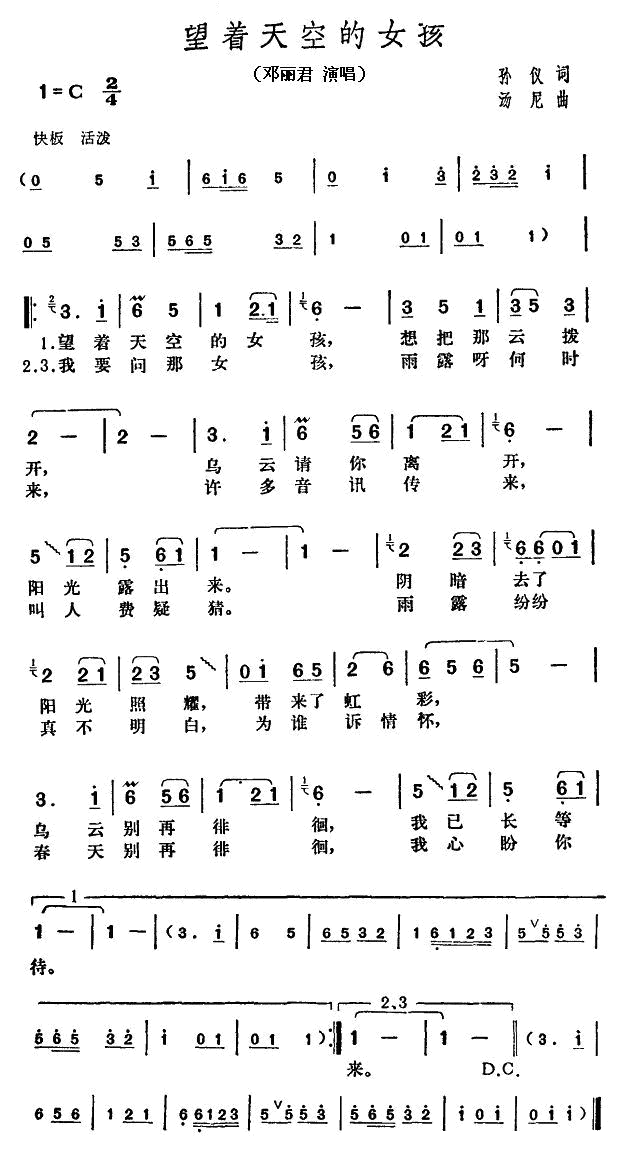 望着天空的女孩
（邓丽君 演唱）
孙仪词
1=C 2/4
汤尼曲
快板 活泼
(0 5 i | 6 i 6 5 | 0 i 3 | 2 3 2 i |
0 5 5 3 | 5 6 5 3 2 | 1 0 1 | 0 1 1) |
3. i | 6 5 | 1 2.1 | 6 — | 3 5 1 | 3 5 3 |
1.望着天空的女孩，想把那云拨
2.3.我要问那女孩，雨露呀何时
2 — | 2 — | 3. i | 6 5 6 | 1 2 1 | 6 — |
开，乌云请你离开，
来，许多音讯传来，
5 1 2 | 5 6 1 | 1 — | 1 — | 2 2 3 | 6 6 0 1 |
阳光露出来。阴暗去了
叫人费疑猜。雨露纷纷
2 2 1 | 2 3 5 | 0 i 6 5 | 2 6 | 6 5 6 | 5 — |
阳光照耀，带来了虹彩，
真不明白，为谁诉情怀，
3. i | 6 5 6 | 1 · 2 1 | 6 — | 5 1 2 | 5 6 1 |
乌云别再徘徊，我已长等
春天别再徘徊，我心盼你
1
1 — | 1 — | (3. i | 6 5 | 6 5 3 2 | 1 6 1 2 3 | 5 V 5 5 3 |
待。
2、3
5 6 5 3 2 | i 0 1 | 0 1 1) :| 1 — | 1 — || (3. i |
来。 D.C.
6 5 6 | 1 2 1 | 6 6 1 2 3 | 5 V 5 5 3 | 5 6 5 3 2 | i 0 i | 0 i i) ||